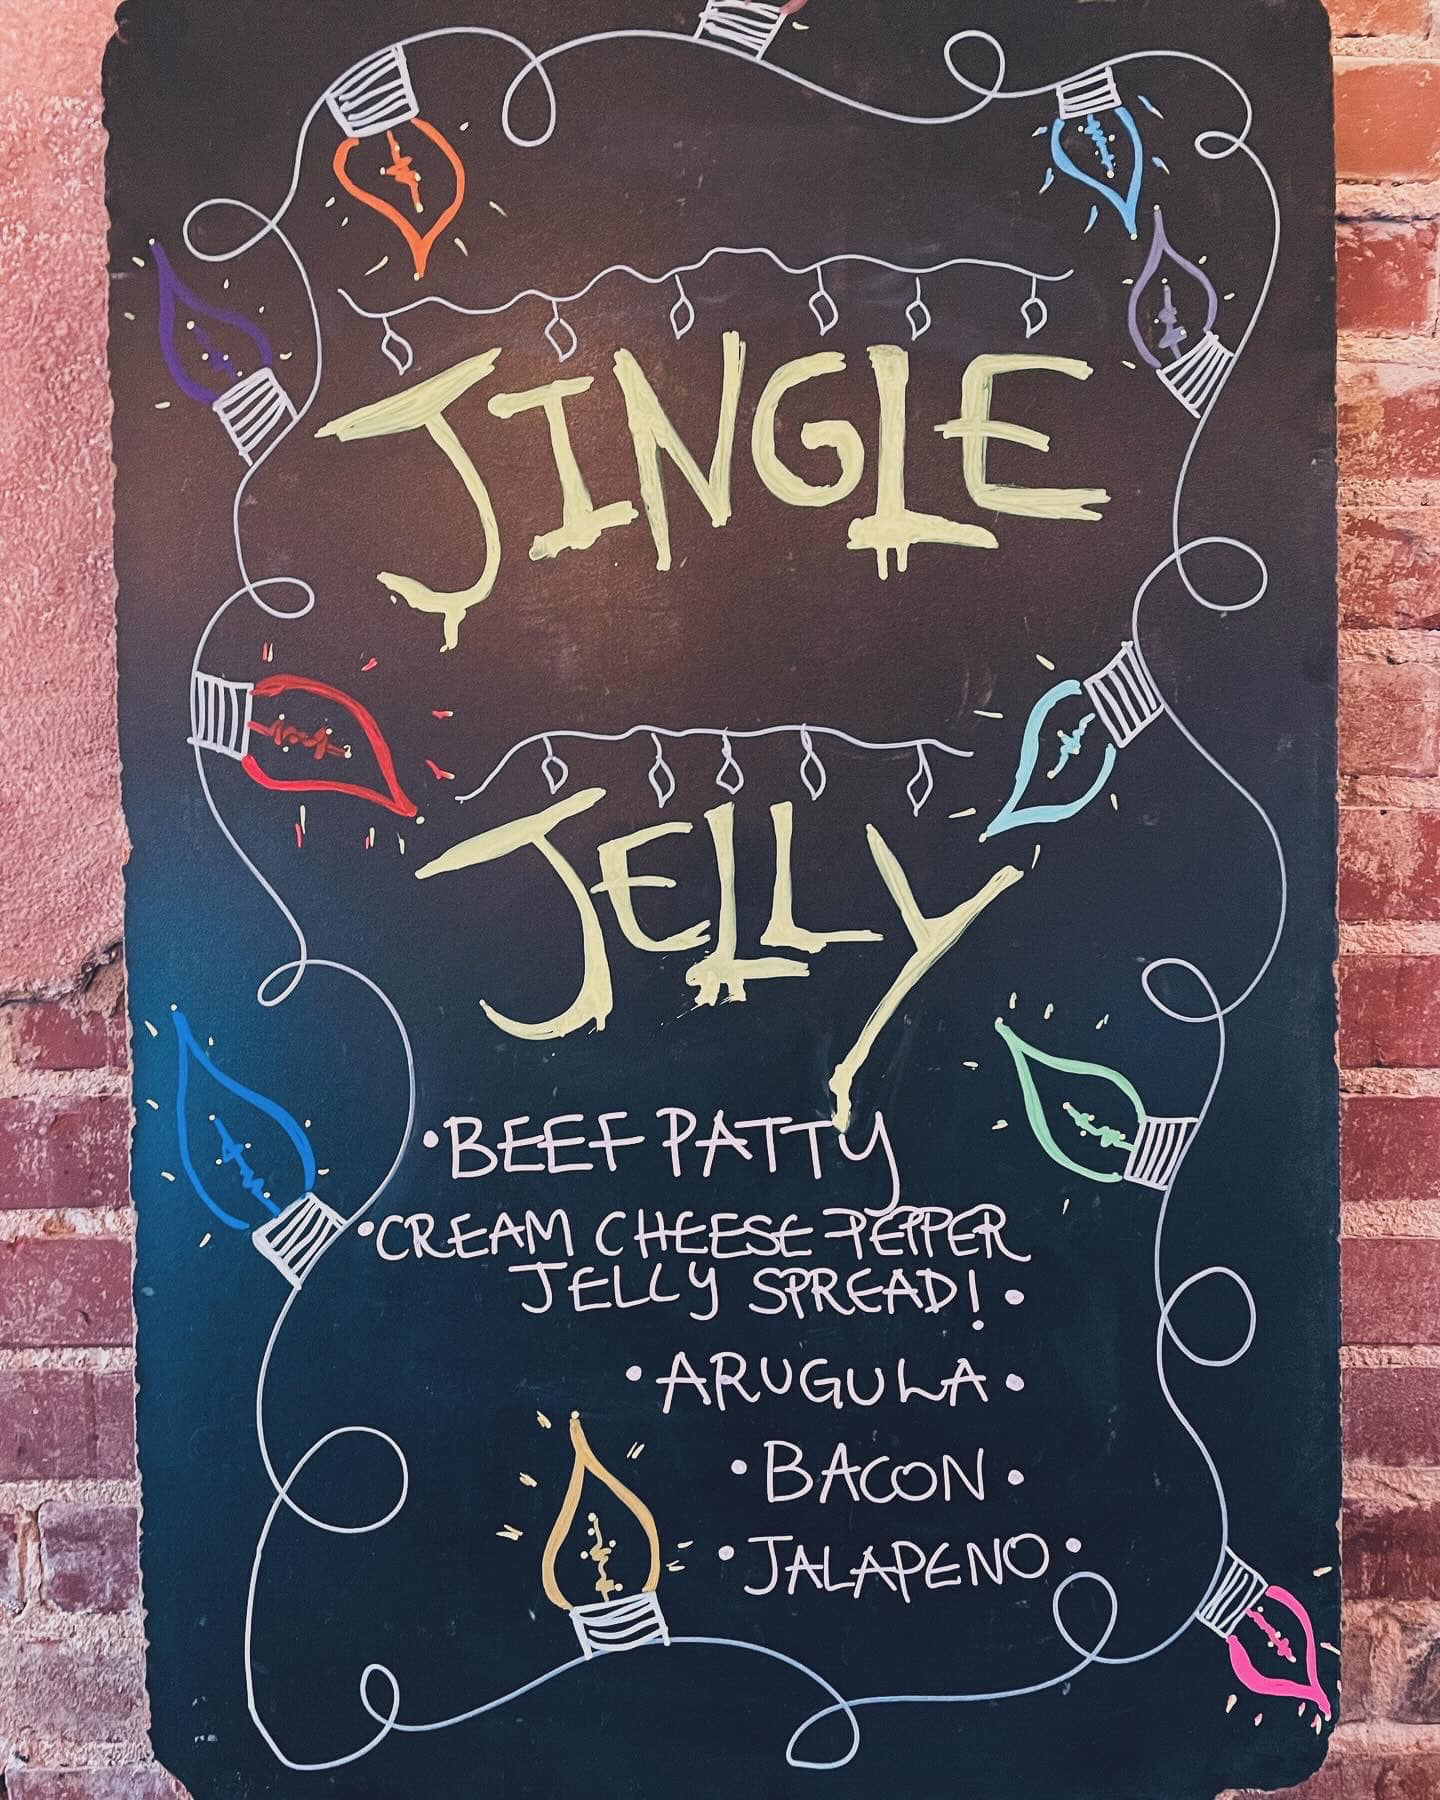 JINGLE
JELLY
•BEEF PATTY
•CREAM CHEESE PEPPER
JELLY SPREAD! •
•ARUGULA•
•BACON•
•JALAPENO•